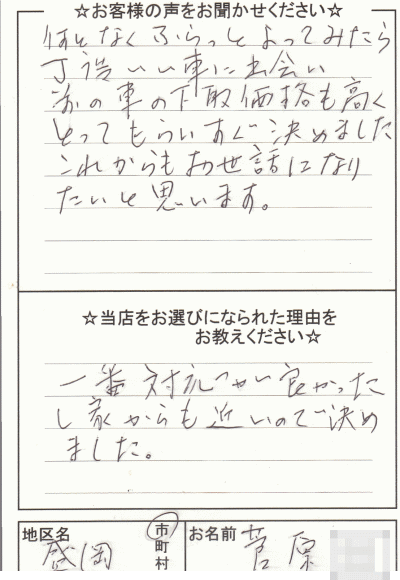 ☆お客様の声をお聞かせください☆
何となくふらっとよってみたら
丁造いい車に出会い
前の車の下取価格も高く
とってもらいすぐ決めました
これからもお世話になり
たいと思います。
☆当店をお選びになられた理由を
お教えください☆
一番対応が良かった
し家からも近いので決め
ました。
地区名
盛岡
市
町
村
お名前
菅原